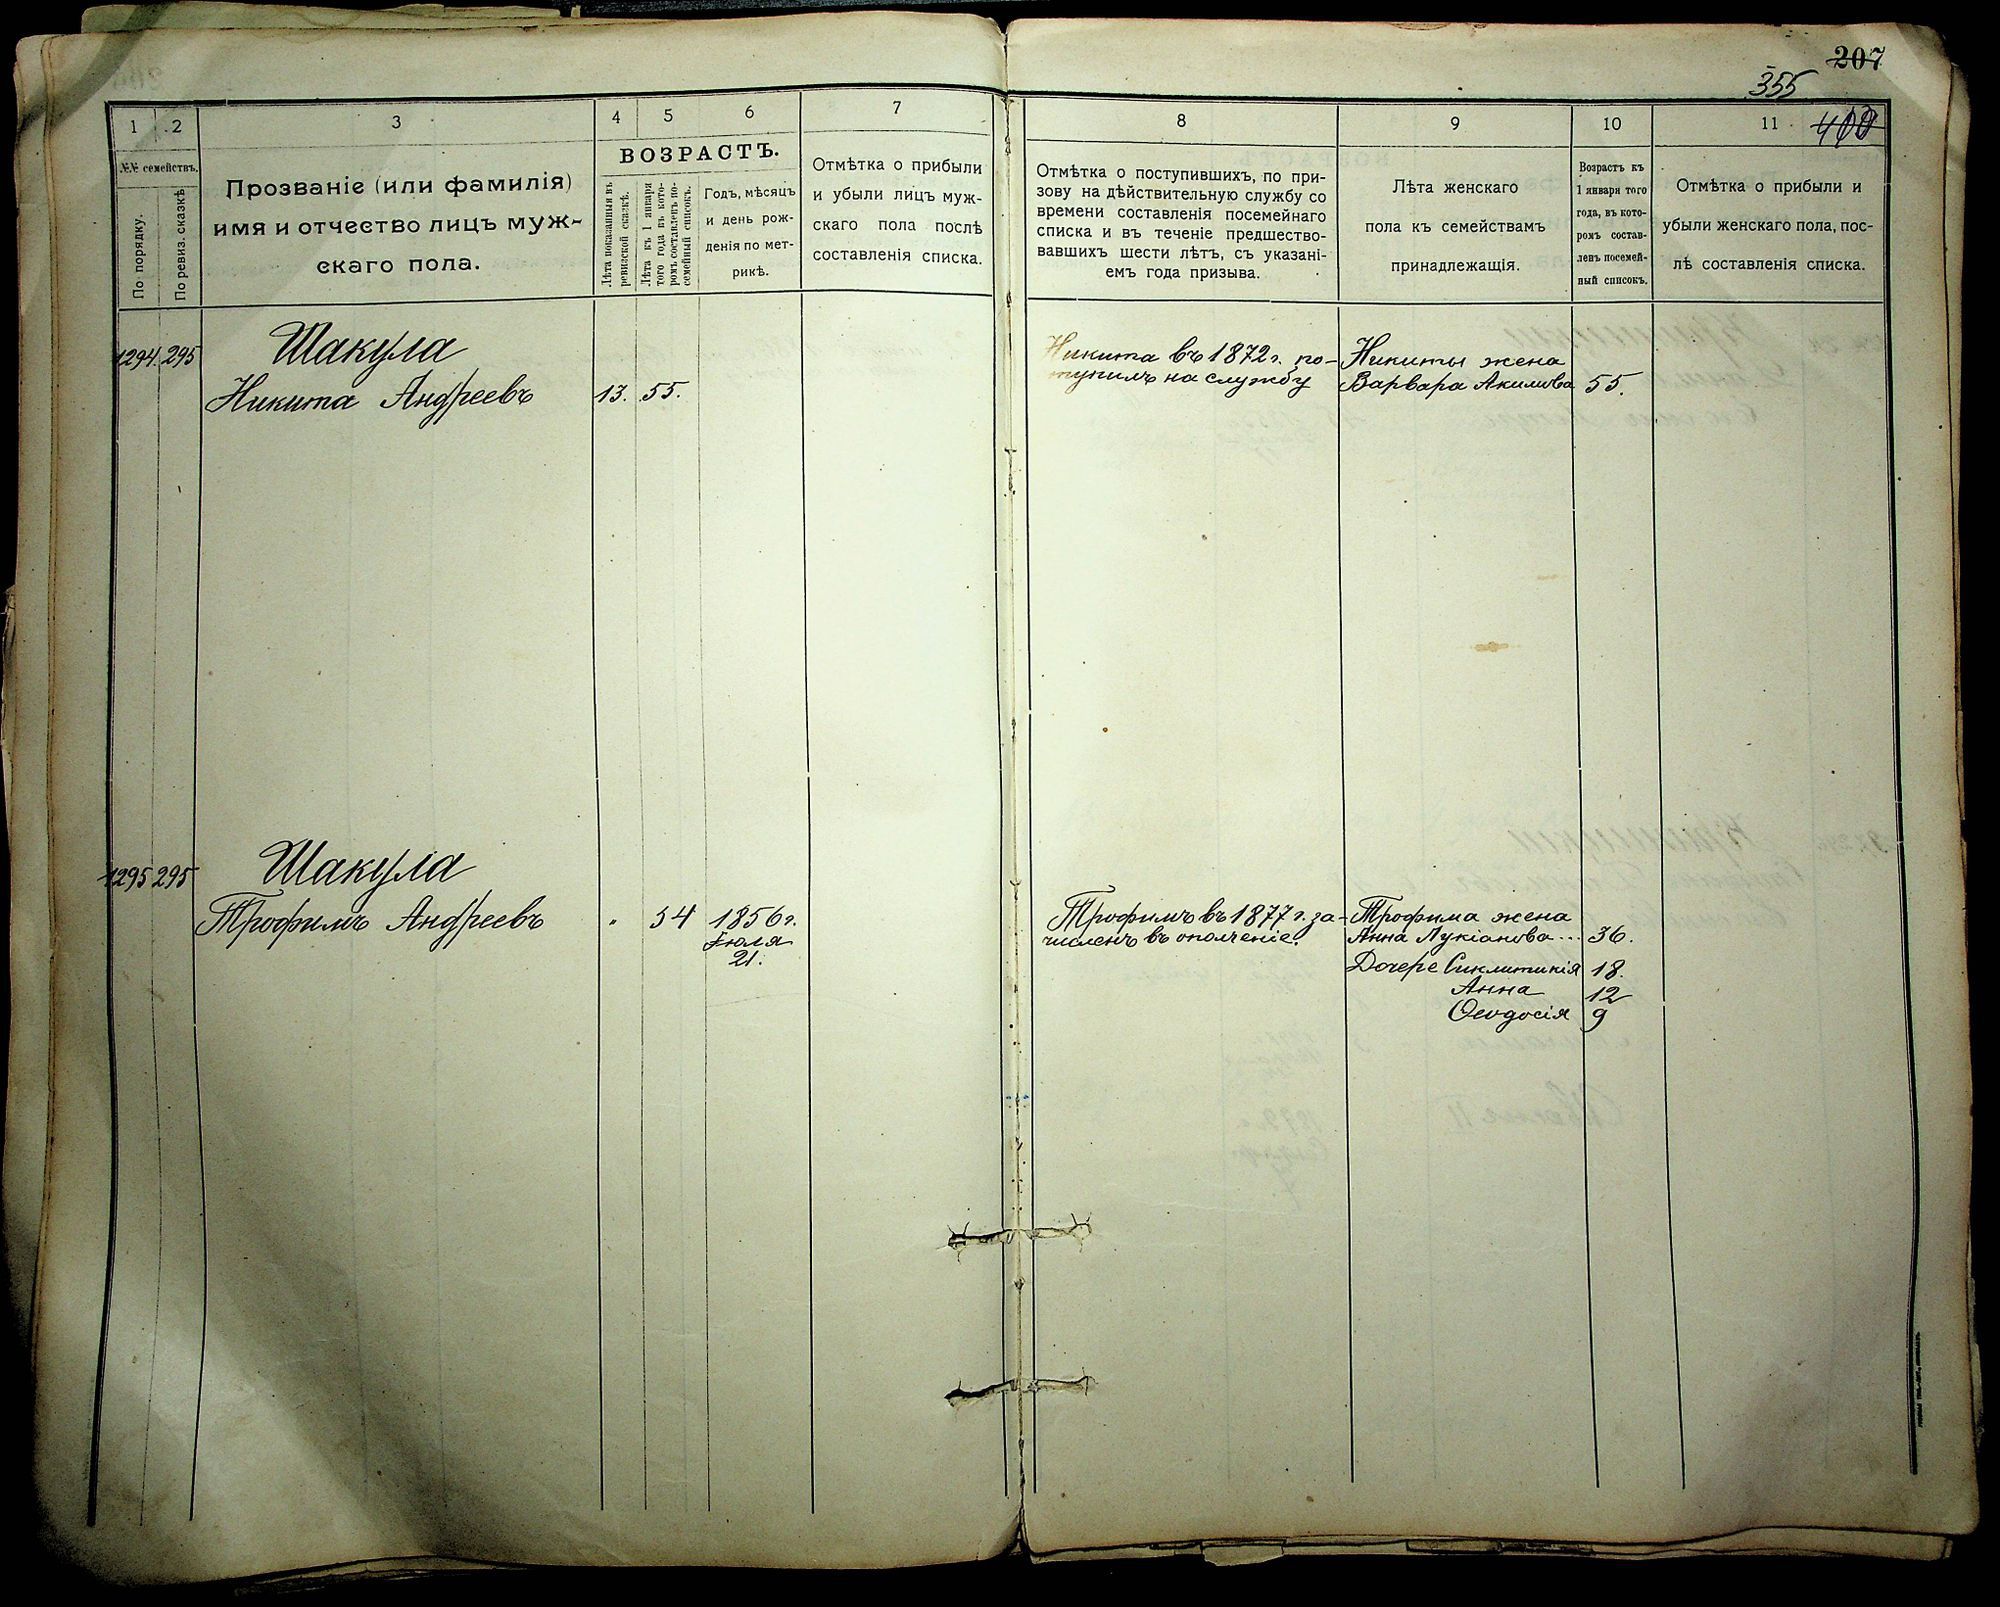 207
355
400
1
2
3
4
5
6
7
8
9
10
11
№№ семействъ.
По порядку.
По ревиз. сказкѣ
Прозваніе (или фамилія)
имя и отчество лицъ муж-
скаго пола.
ВОЗРАСТЪ.
Лѣта показанныя въ
ревизской сказкѣ.
Лѣта къ 1 января
того года въ кото-
ромъ составленъ по-
семейный списокъ.
Годъ, мѣсяцъ
и день рож-
денія по мет-
рикѣ.
Отмѣтка о прибыли
и убыли лицъ муж-
скаго пола послѣ
составленія списка.
Отмѣтка о поступившихъ, по при-
зову на дѣйствительную службу со
времени составленія посемейнаго
списка и въ теченіе предшество-
вавшихъ шести лѣтъ, съ указані-
емъ года призыва.
Лѣта женскаго
пола къ семействамъ
принадлежащія.
Возрастъ къ
1 января того
года, въ кото-
ромъ состав-
ленъ посемей-
ный списокъ.
Отмѣтка о прибыли и
убыли женскаго пола, пос-
лѣ составленія списка.
1294. 295
Шакула
Никита Андреевъ 13. 55.
Никита въ 1872 г. по-
тупилъ на службу
Никиты жена
Варвара Акимова 55.
1295 295
Шакула
Трофимъ Андреевъ " 54 1856 г.
Іюля
21.
Трофимъ въ 1877 г. за-
численъ въ ополченіе.
Трофима жена
Анна Лукіанова... 36.
Дочере Сиклитикія 18.
Анна 12
Ѳеодосія 9